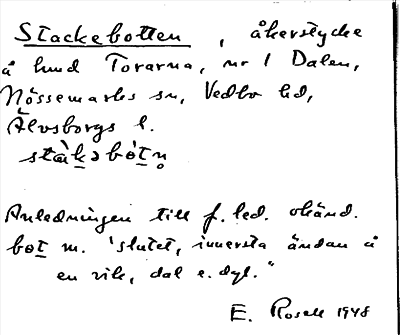 Stackebotten, åkerstycke
å hmd Torarna, nr 1 Dalen,
Nössemarks sn, Vedbo hd,
Älvsborgs l.
stàkə bòtn̥
Anledningen till f. led. okänd.
bot m. "slutet, innersta ändan å
en vik, dal e. dyl."
E. Rosell 1948